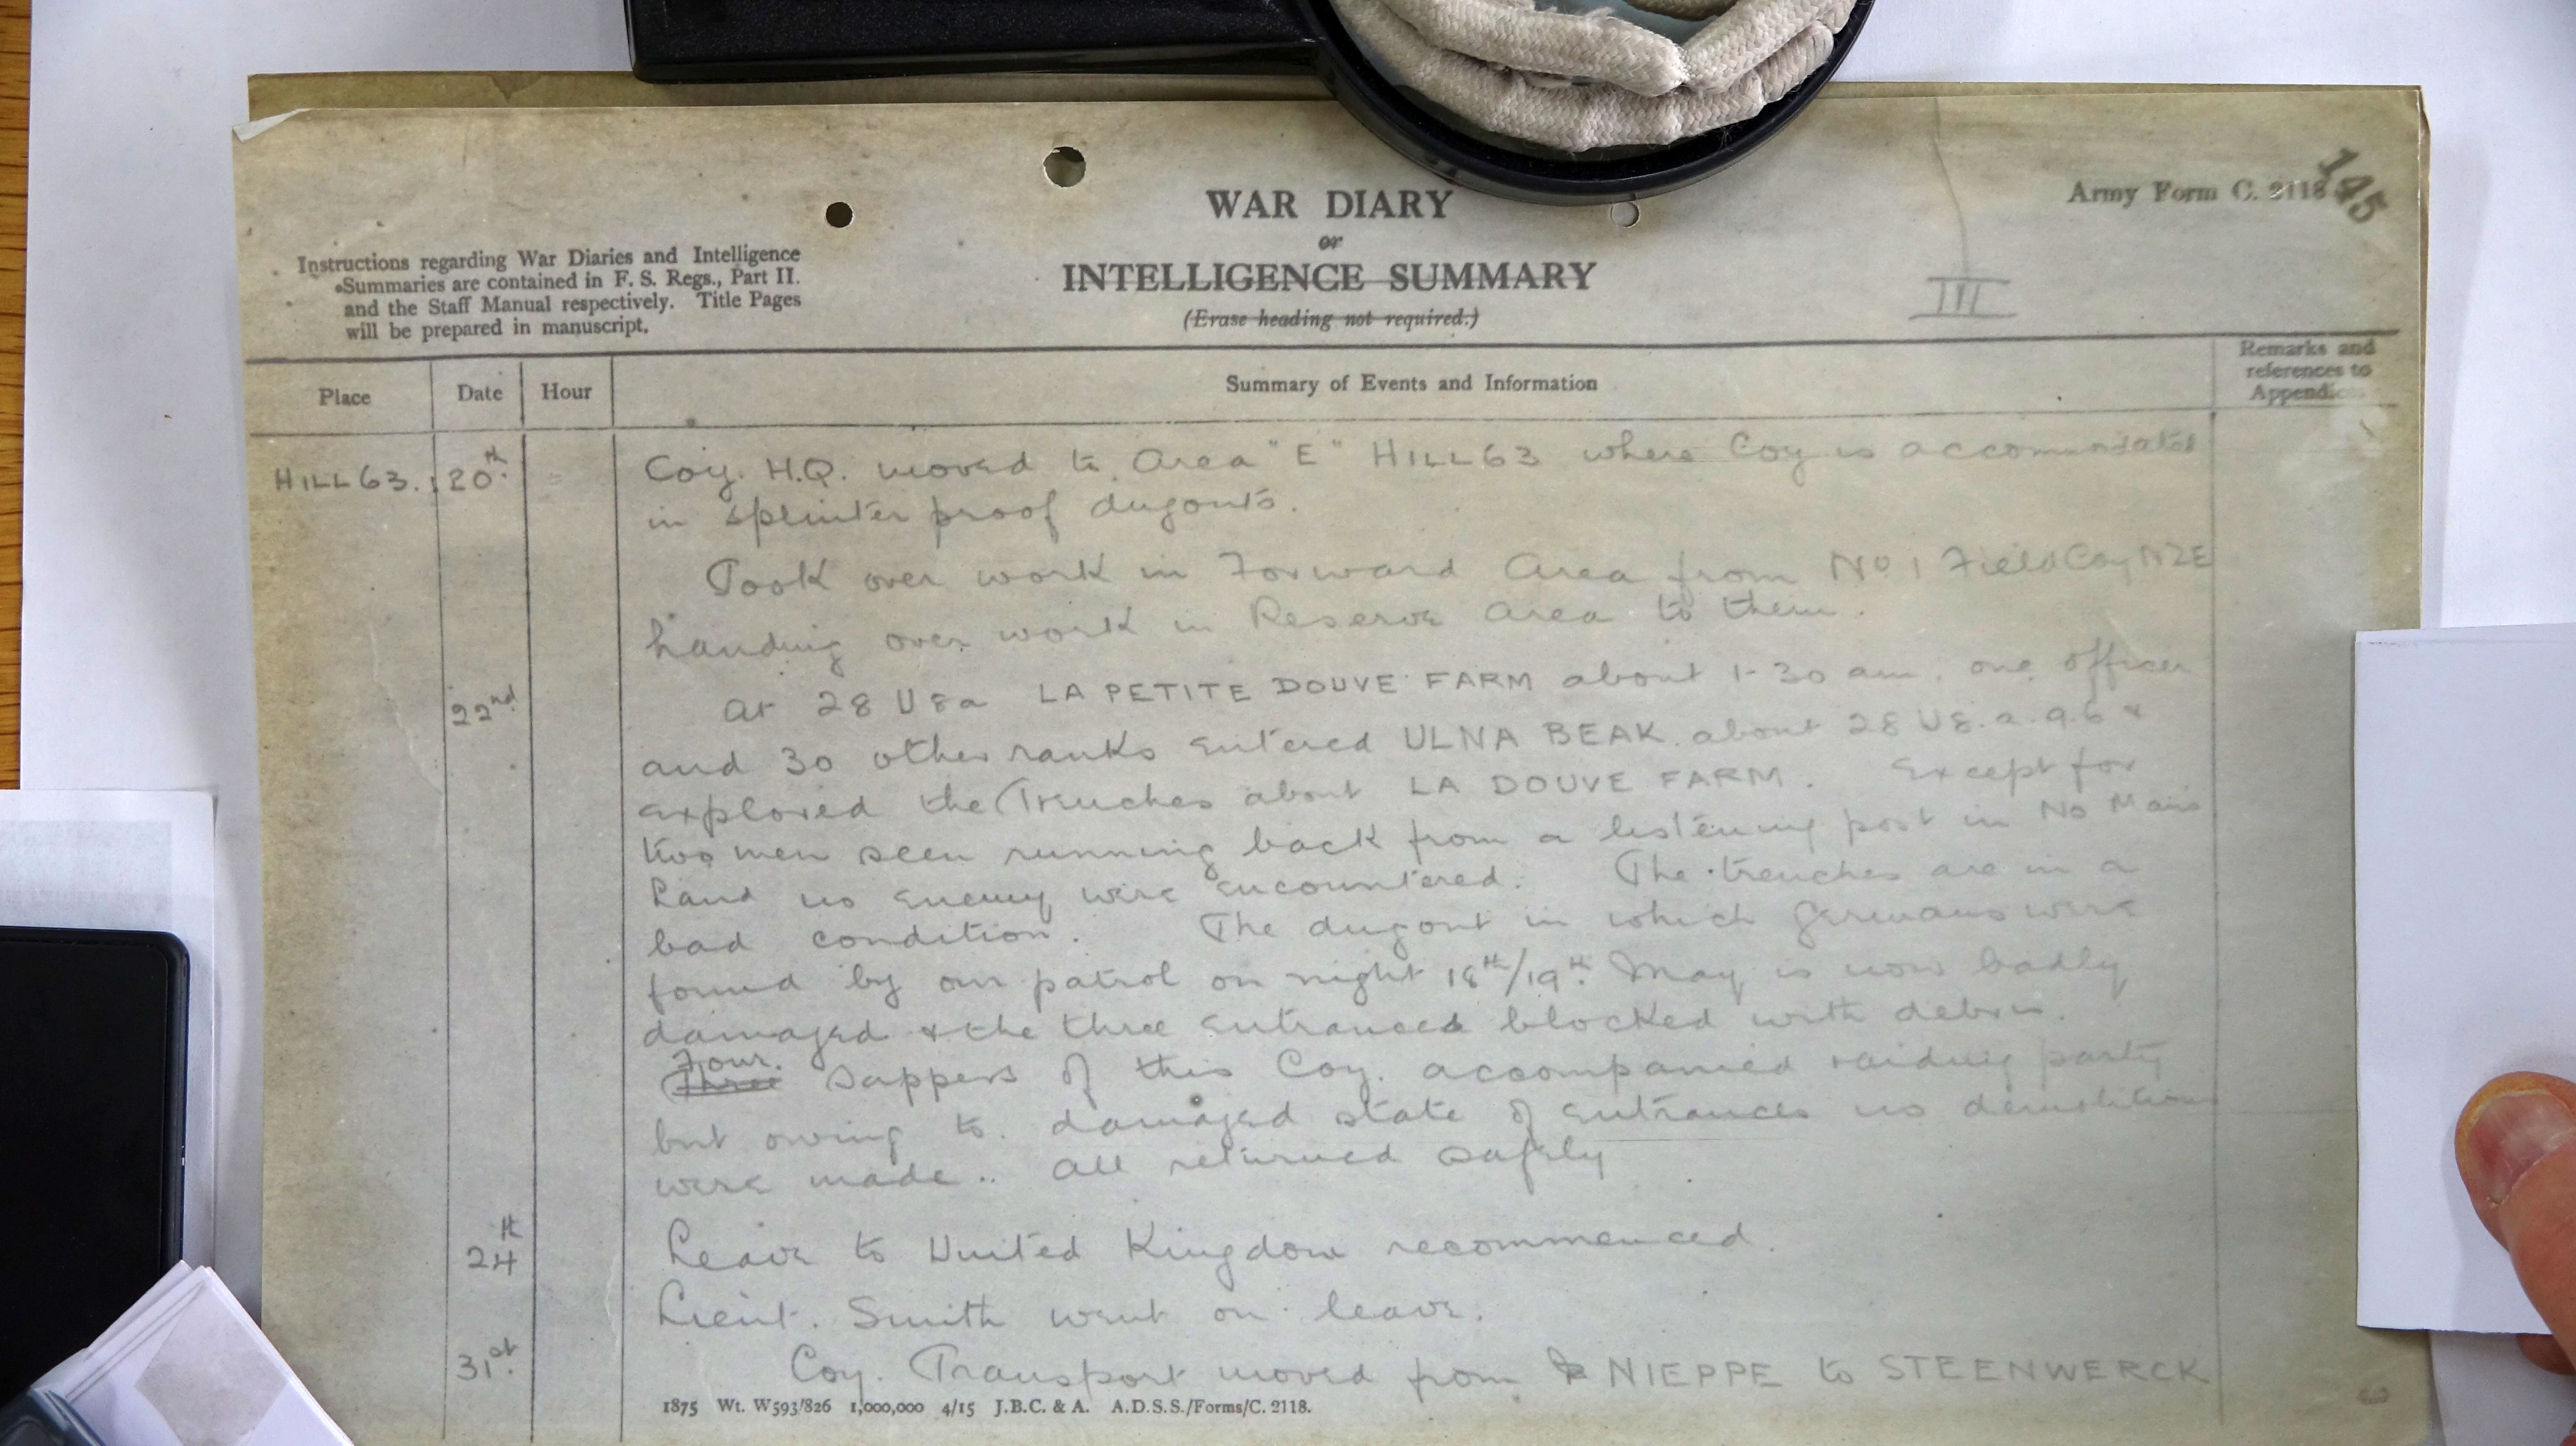 WAR DIARY
or
INTELLIGENCE SUMMARY
(Erase heading not required.)
Army Form C. 2118
145
III
Instructions regarding War Diaries and Intelligence
Summaries are contained in F. S. Regs., Part II.
and the Staff Manual respectively. Title Pages
will be prepared in manuscript.
Place Date Hour Summary of Events and Information Remarks and references to
HILL 63. 20th. Coy. H.Q. moved to Area "E" HILL 63 where Coy is accommodated
in splinter proof dugouts.
Took over work in Forward Area from No 1 Field Coy NZE
handing over work in Reserve Area to them.
22nd. At 28 U 8 a LA PETITE DOUVE FARM about 1-30 am. one officer
and 30 other ranks entered ULNA BEAK about 28 U8.a.9.6 &
explored the Trenches about LA DOUVE FARM. Except for
two men seen running back from a listening post in No Mans
Land no enemy were encountered. The trenches are in a
bad condition. The dugout in which Germans were
found by our patrol on night 18th/19th. May is now badly
damaged & the three entrances blocked with debris.
Four.
Three Sappers of this Coy. accompanied raiding party
but owing to damaged state of entrances no demolitions
were made.. All returned safely
24th Leave to United Kingdom recommenced.
Lieut. Smith went on leave.
31st. Coy. Transport moved from NIEPPE to STEENWERCK
1875 Wt. W593/826 1,000,000 4/15 J.B.C. & A. A.D.S.S./Forms/C. 2118.